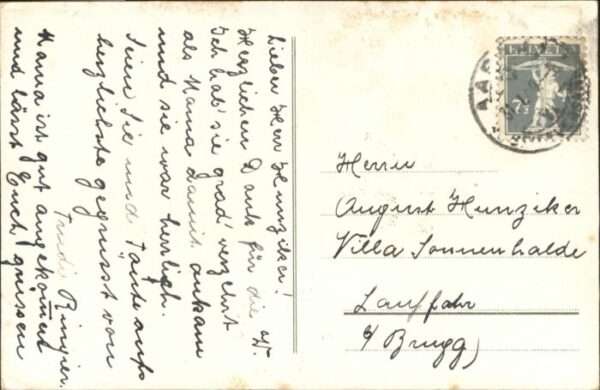 Lieber Herr Hunziker!
Herzlichen Dank für die W.
Ich hab' sie grad' verzehrt
als Mama damit ankam
und sie war herrlich.
Seien Sie und Tante aufs
herzlichste gegrüsst von
Trudi Ringier.
Mama ist gut angekommen
und lässt Euch grüssen
HELVETIA
7½
AAR
Herrn
August Hunziker
Villa Sonnenhalde
Lauffohr
b/ Brugg)